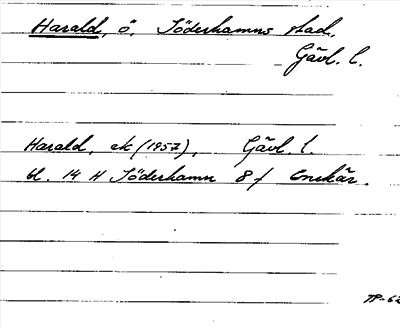 Harald, ö. Söderhamns stad.
Gävl. l.
Harald, ek (1957), Gävl. l.
bl. 14 H Söderhamn 8 f Enskär.
TP-62